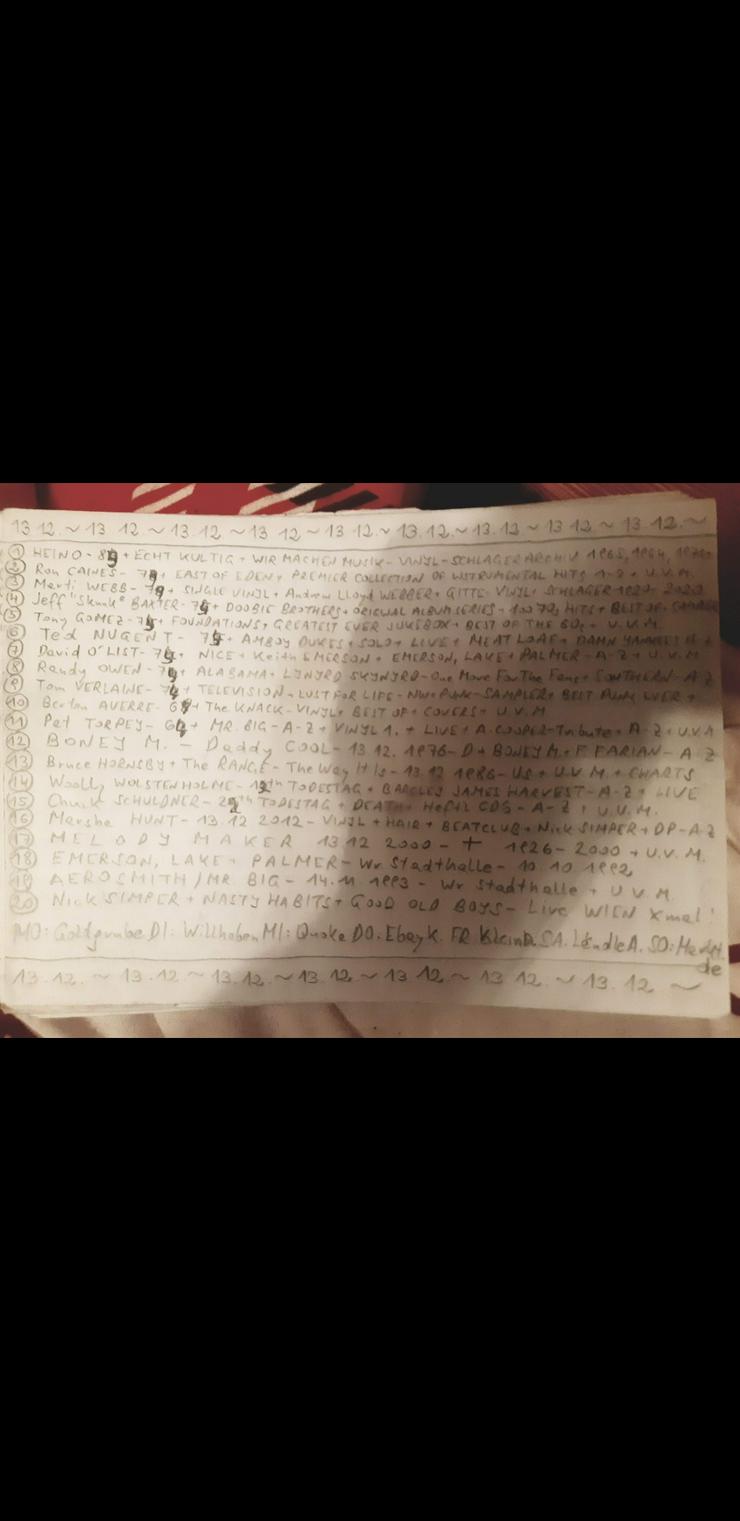 13 12. ~ 13 12 ~ 13.12 ~ 13 12 ~ 13.12 ~ 13.12. ~ 13.12 ~ 13.12 ~ 13.12. ~
1 HEINO - + ECHT KULTIG + WIR MACHEN MUSIK - VINYL - SCHLAGERARCHIV
2 Ron CAINES - + EAST OF EDEN + PREMIER COLLECTION OF INSTRUMENTAL HITS A-Z + U.V.M.
3 Marti WEBB - + SINGLE VINYL + Andrew Lloyd WEBBER + GITTE - VINYL + SCHLAGER
4 Jeff "Skunk" BAXTER - + DOOBIE BROTHERS + ORIGINAL ALBUM SERIES - HITS + BEST OF
5 Tony GOMEZ - + FOUNDATIONS + GREATEST EVER JUKEBOX + BEST OF THE 60s + U.V.M.
6 Ted NUGENT - + AMBOY DUKES + SOLO + LIVE + MEAT LOAF + DAMN YANKEES
7 David O'LIST - + NICE + Keith EMERSON + EMERSON, LAKE + PALMER - A-Z + U.V.M
8 Randy OWEN - + ALABAMA + LYNYRD SKYNYRD - One More For The Fans + SOUTHERN - A-Z
9 Tom VERLAINE - + TELEVISION - LUST FOR LIFE - NW + PUNK - SAMPLER + BEST PUNK EVER +
10 Berton AVERRE - + The KNACK - VINYL + BEST OF + COVERS + U.V.M
11 Pat TORPEY - + MR. BIG - A-Z + VINYL 1. + LIVE + A.COOPER - Tribute + A-Z + U.V.M
12 BONEY M. - Daddy COOL - 13.12.1976 - D + BONEY M + F. FARIAN - A-Z
13 Bruce HORNSBY + The RANGE - The Way It Is - 13.12 1986 - US + U.V.M. + CHARTS
14 Woolly WOLSTENHOLME - TODESTAG + BARCLEY JAMES HARVEST - A-Z + LIVE
15 Chuck SCHULDNER - TODESTAG + DEATH + CDS - A-Z + U.V.M.
16 Marsha HUNT - 13.12 2012 - VINYL + HAIR + BEATCLUB + Nick SIMPER + DP - A-Z
17 MELODY MAKER 13 12 2000 - + 1926 - 2000 + U.V.M.
18 EMERSON, LAKE + PALMER - Wr. Stadthalle - 10.10 1992
19 AEROSMITH / MR. BIG - 14.11 1993 - Wr Stadthalle + U.V.M.
20 Nick SIMPER + NASTY HABITS + GOOD OLD BOYS - Live WIEN Xmal!
MO: Goldgrube DI: Willhaben MI: Quoka DO: Ebay K. FR. Klein SA. LändleA. SO: Markt.
de
13.12. ~ 13.12 ~ 13.12 ~ 13.12 ~ 13.12 ~ 13 12. ~ 13.12 ~